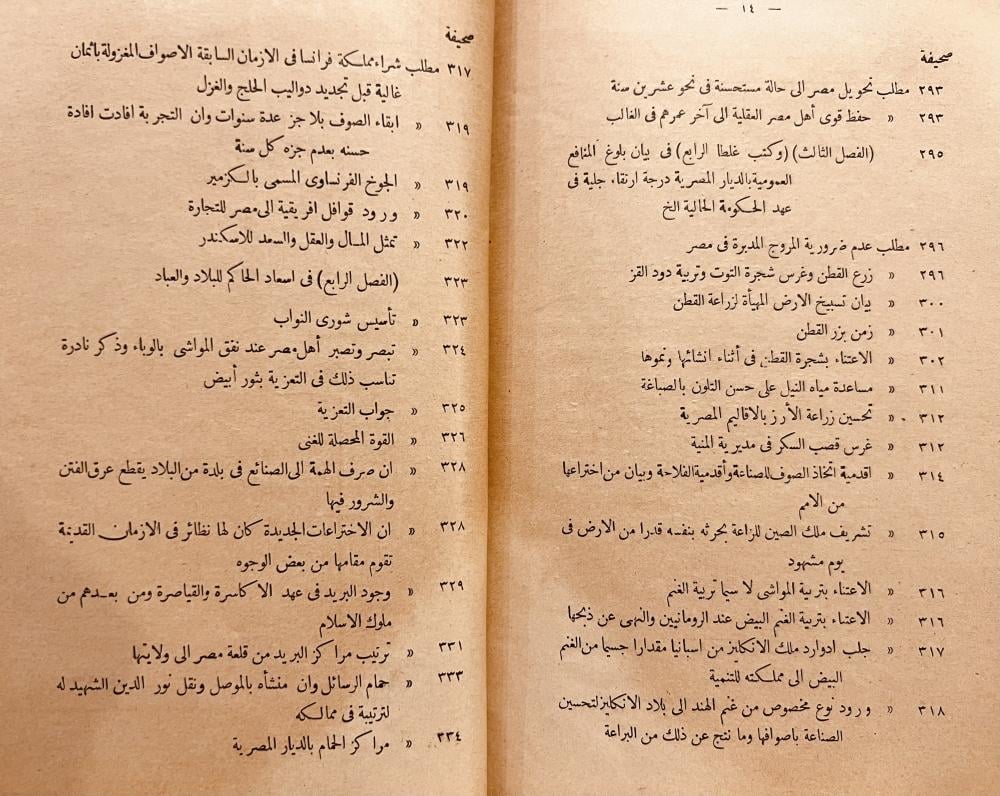 — ١٤ —
صحيفة
٢٩٣ مطلب تحويل مصر الى حالة مستحسنة فى نحو عشرين سنة
٢٩٣ « حفظ قوى أهل مصر العقلية الى آخر عمرهم فى الغالب
٢٩٥ (الفصل الثالث) (وكتب غلطا الرابع) فى بيان بلوغ المنافع
العمومية بالديار المصرية درجة ارتقاء جلية فى
عهد الحكومة الحالية الخ
٢٩٦ مطلب عدم ضرورية المروج المدبرة فى مصر
٢٩٦ « زرع القطن وغرس شجرة التوت وتربية دود القز
٣٠٠ « بيان تسبيخ الارض المهيأة لزراعة القطن
٣٠١ « زمن بزر القطن
٣٠٢ « الاعتناء بشجرة القطن فى أثناء انشائها ونموها
٣١١ « مساعدة مياه النيل على حسن التلون بالصباغة
٣١٢ « تحسين زراعة الأرز بالاقاليم المصرية
٣١٢ « غرس قصب السكر فى مديرية المنية
٣١٤ « اقدمية اتخاذ الصوف للصناعة وأقدمية الفلاحة وبيان من اختراعها
من الامم
٣١٥ « تشريف ملك الصين للزاعة بحرثه بنفسه قدرا من الارض فى
يوم مشهود
٣١٦ « الاعتناء بتربية المواشى لا سيما تربية الغنم
٣١٦ « الاعتناء بتربية الغنم البيض عند الرومانيين والنهى عن ذبحها
٣١٧ « جلب ادوارد ملك الانكليز من اسبانيا مقدارا جسيما من الغنم
البيض الى مملكته للتنمية
٣١٨ « ورود نوع مخصوص من غنم الهند الى بلاد الانكليز لتحسين
الصناعة باصوافها وما نتج عن ذلك من البراعة
صحيفة
٣١٧ مطلب شراء مملكة فرانسا فى الازمان السابقة الاصواف المغزولة باثمان
غالية قبل تجديد دواليب الحلج والغزل
٣١٩ « ابقاء الصوف بلا جز عدة سنوات وان التجربة افادت افادة
حسنه بعدم جزه كل سنة
٣١٩ « الجوخ الفرنساوى المسمى بالكزمير
٣٢٠ « ورود قوافل افريقية الى مصر للتجارة
٣٢٢ « تمثل المال والعقل والسعد للاسكندر
٣٢٣ (الفصل الرابع) فى اسعاد الحاكم للبلاد والعباد
٣٢٣ « تأسيس شورى النواب
٣٢٤ « تبصر وتصبر أهل مصر عند نفق المواشى بالوباء وذكر نادرة
تناسب ذلك فى التعزية بثور أبيض
٣٢٥ « جواب التعزية
٣٢٦ « القوة المحصلة للغنى
٣٢٨ « ان صرف الهمة الى الصنائع فى بلدة من البلاد يقطع عرق الفتن
والشرور فيها
٣٢٨ « ان الاختراعات الجديدة كان لها نظائر فى الازمان القديمة
تقوم مقامها من بعض الوجوه
٣٢٩ « وجود البريد فى عهد الاكاسرة والقياصرة ومن بعدهم من
ملوك الاسلام
٣٣١ « ترتيب مراكز البريد من قلعة مصر الى ولايتها
٣٣٣ « حمام الرسائل وان منشأه بالموصل ونقل نور الدين الشهيد له
لترتيبة فى ممالكه
٣٣٤ « مراكز الحمام بالديار المصرية